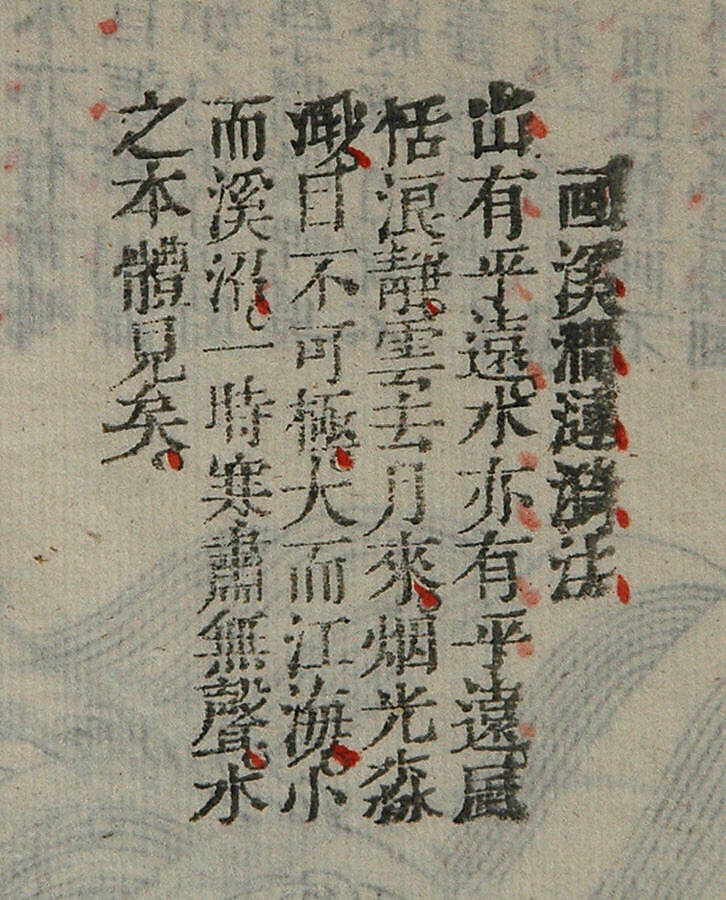 画溪澗漣漪法
山有平遠水亦有平遠風
恬浪靜。雲去月來。烟光森
渺。目不可極。大而江海。小
而溪沼。一時寒肅無聲。水
之本體見矣。